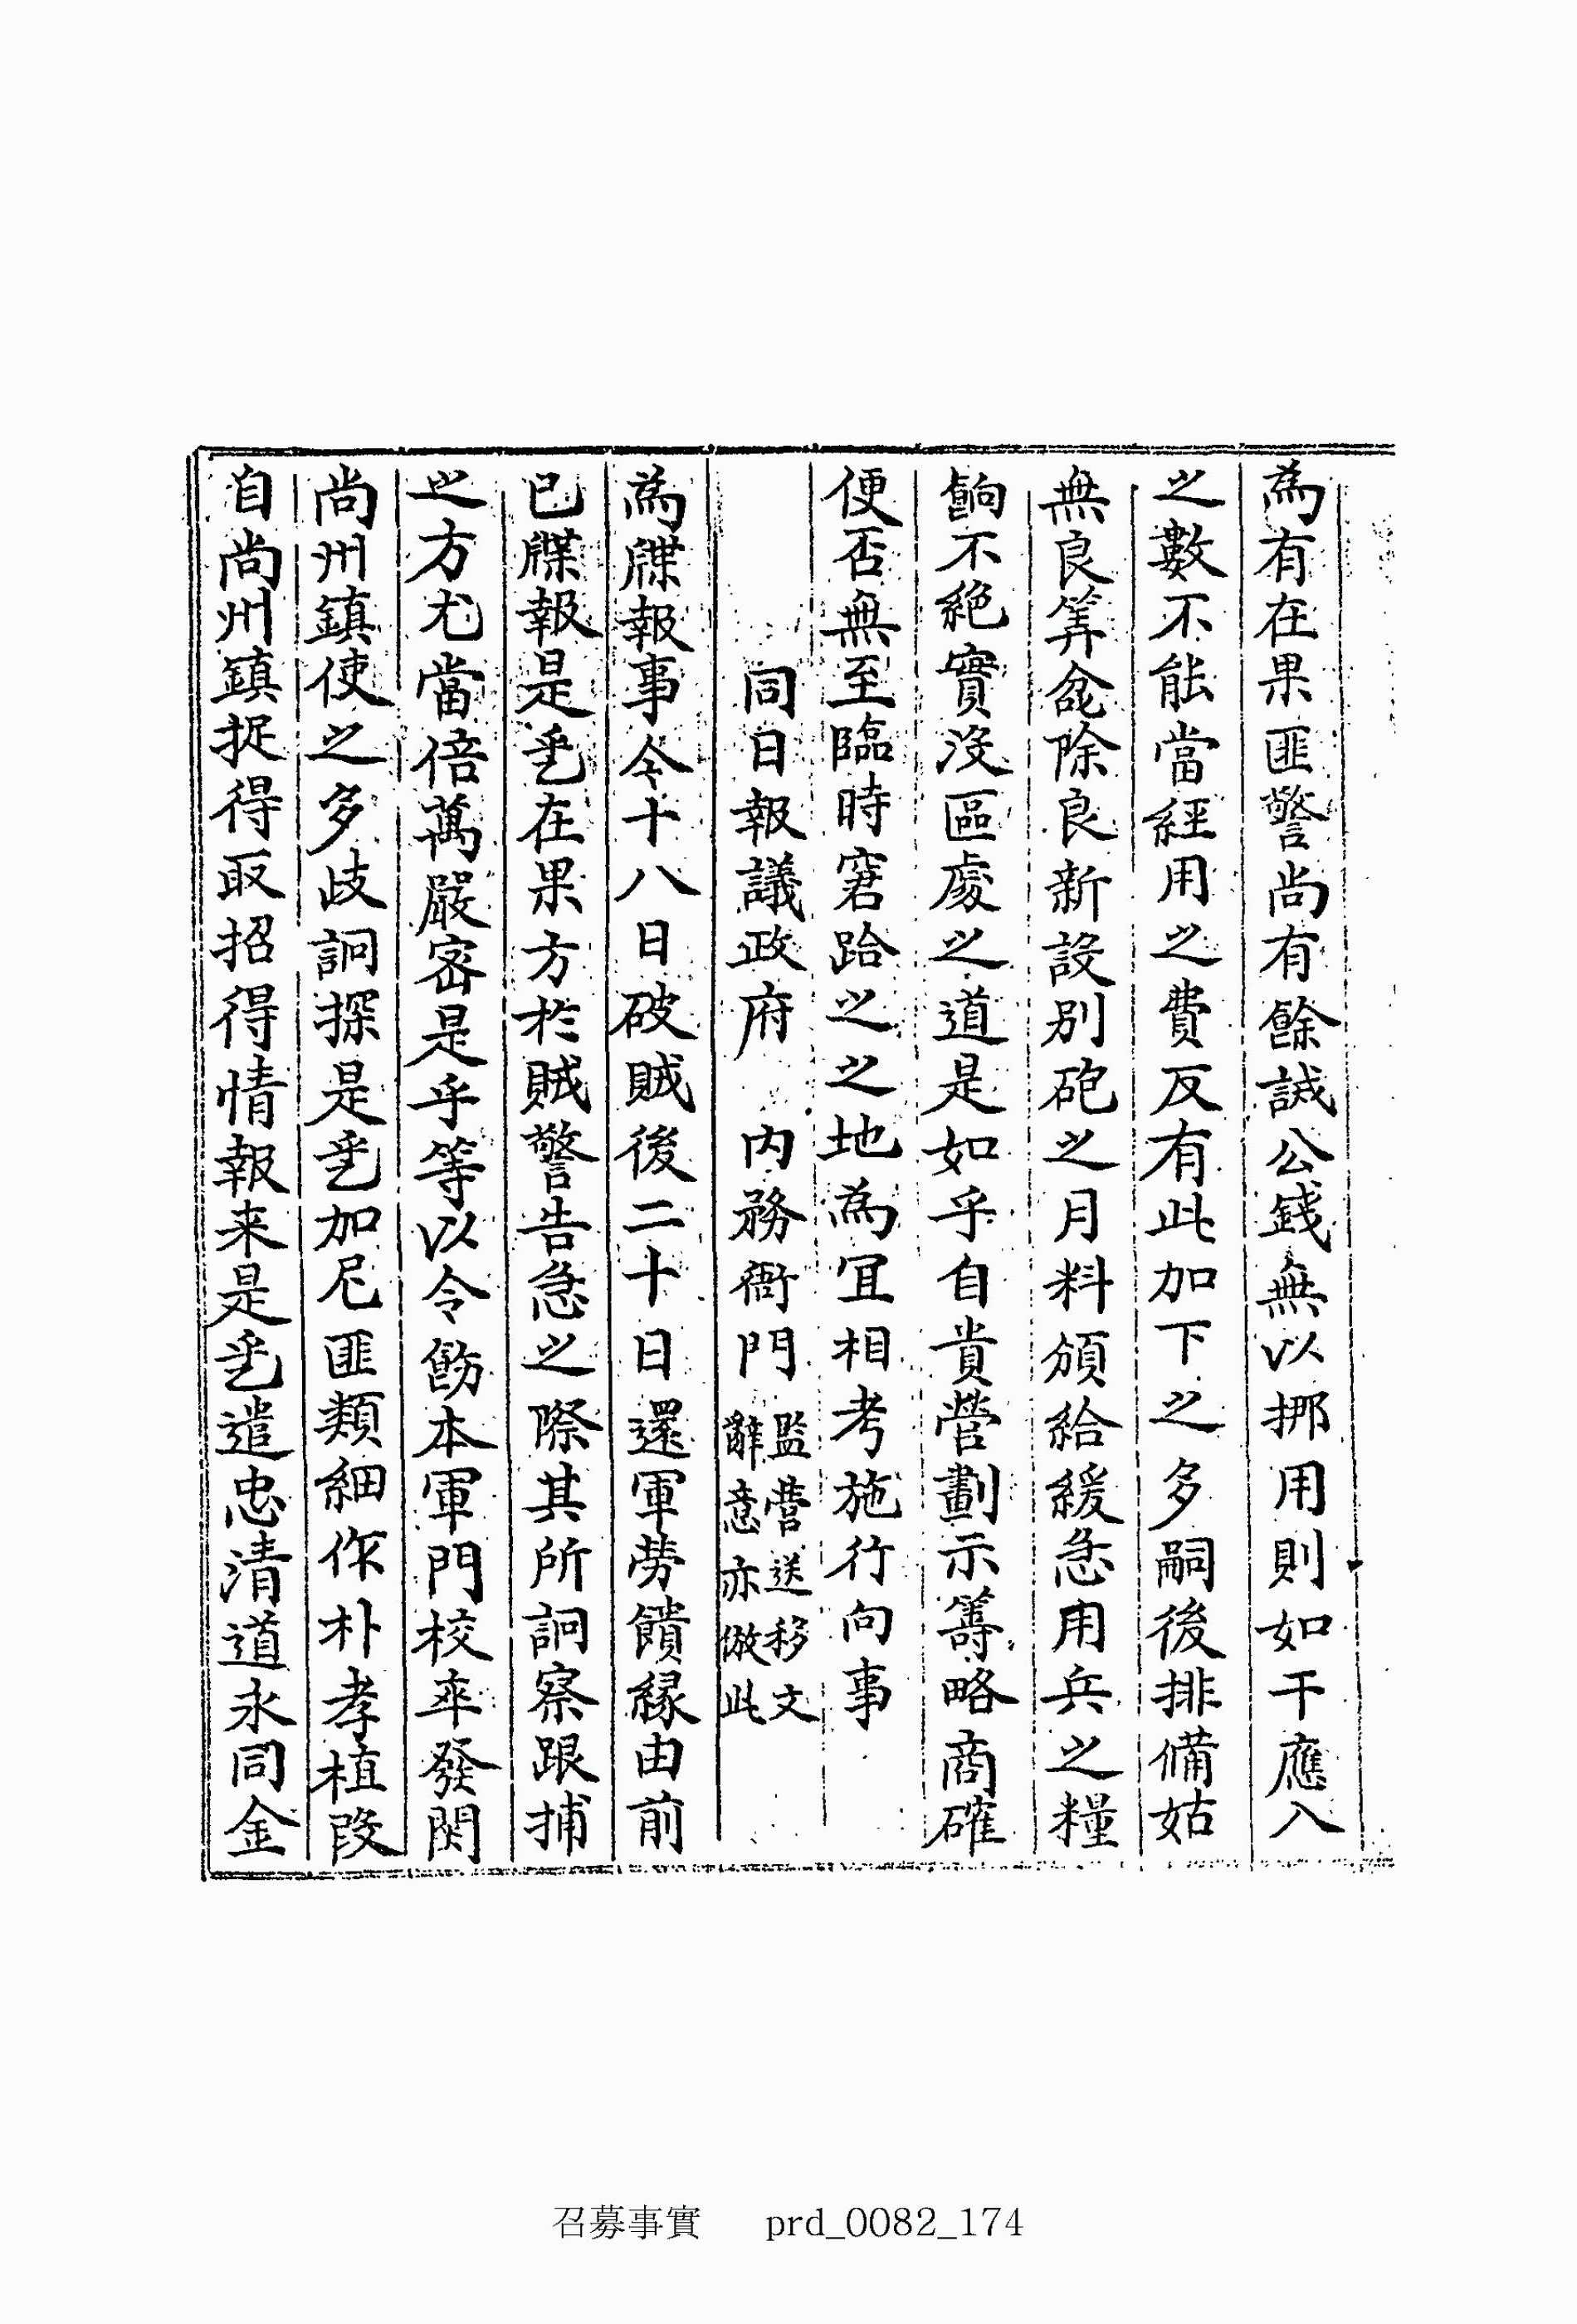 為有在果匪警尚有餘誡公錢無以挪用則如干應入
之數不能當經用之費反有此加下之多嗣後排備姑
無良筭兺除良新設別砲之月料頒給緩急用兵之糧
餉不絶實沒區處之道是如乎自貴營劃示籌略商確
便否無至臨時窘跲之之地為宜相考施行向事
同日報議政府 內務衙門 監營送移文
辭意亦倣此
為牒報事今十八日破賊後二十日還軍勞饋緣由前
已牒報是乎乙在果方於賊警告急之際其所詗察跟捕
之方尤當倍萬嚴密是乎等以令飭本軍門校卒發関
尚州鎮使之多歧詗探是乎乙加尼匪類細作朴孝植段
自尚州鎮捉得取招得情報来是乎乙遣忠清道永同金